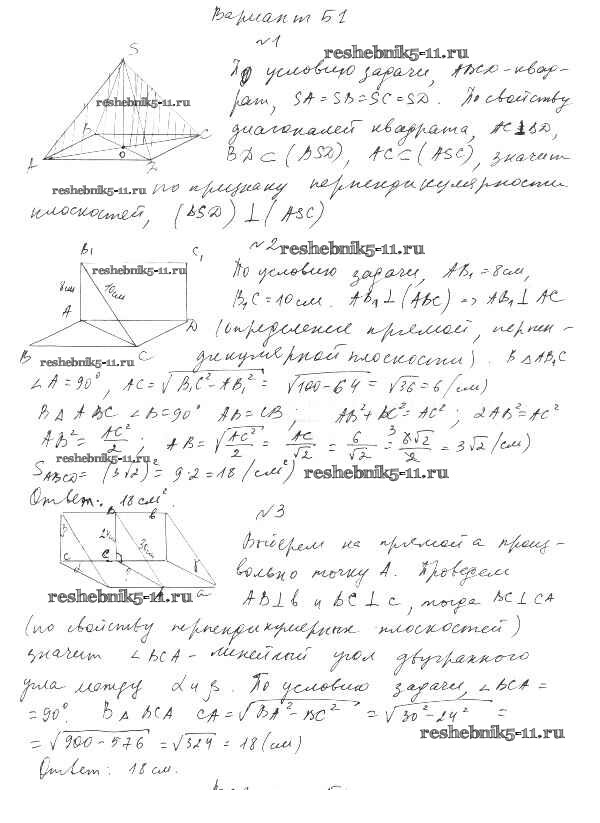 Вариант Б1
№1
reshebnik5-11.ru
По условию задачи, ABCD - квад-
рат, SA = SB = SC = SD. По свойству
диагоналей квадрата, AC ⊥ BD,
BD ⊂ (BSD), AC ⊂ (ASC), значит
по признаку перпендикулярности
плоскостей, (BSD) ⊥ (ASC)
S
reshebnik5-11.ru
B
C
A
O
reshebnik5-11.ru
№2
reshebnik5-11.ru
По условию задачи, AB₁ = 8см,
B₁C = 10см. AB₁ ⊥ (ABC) => AB₁ ⊥ AC
(определение прямой, перпен-
дикулярной плоскости). В △AB₁C
∠A = 90°, AC = √B₁C² - AB₁² = √100 - 64 = √36 = 6 (см)
В △ABC ∠B = 90° AB = CB; AB² + BC² = AC²; 2AB² = AC²
AB² = AC²/2; AB = √AC²/2 = AC/√2 = 6/√2 = 6√2/2 = 3√2 (см)
S ABCD = (3√2)² = 9·2 = 18 (см²)
Ответ: 18 см².
B₁
C₁
reshebnik5-11.ru
8см
10см
A
D
B
C
reshebnik5-11.ru
reshebnik5-11.ru
reshebnik5-11.ru
№3
Выберем на прямой a произ-
вольно точку A. Проведем
AB ⊥ b и BC ⊥ c, тогда BC ⊥ CA
(по свойству перпендикулярных плоскостей)
значит ∠BCA - линейный угол двугранного
угла между α и β. По условию задачи, ∠BCA =
= 90°. В △BCA CA = √BA² - BC² = √30² - 24² =
= √900 - 576 = √324 = 18 (см)
Ответ: 18 см.
B
b
24см
30см
c
C
a
reshebnik5-11.ru
reshebnik5-11.ru